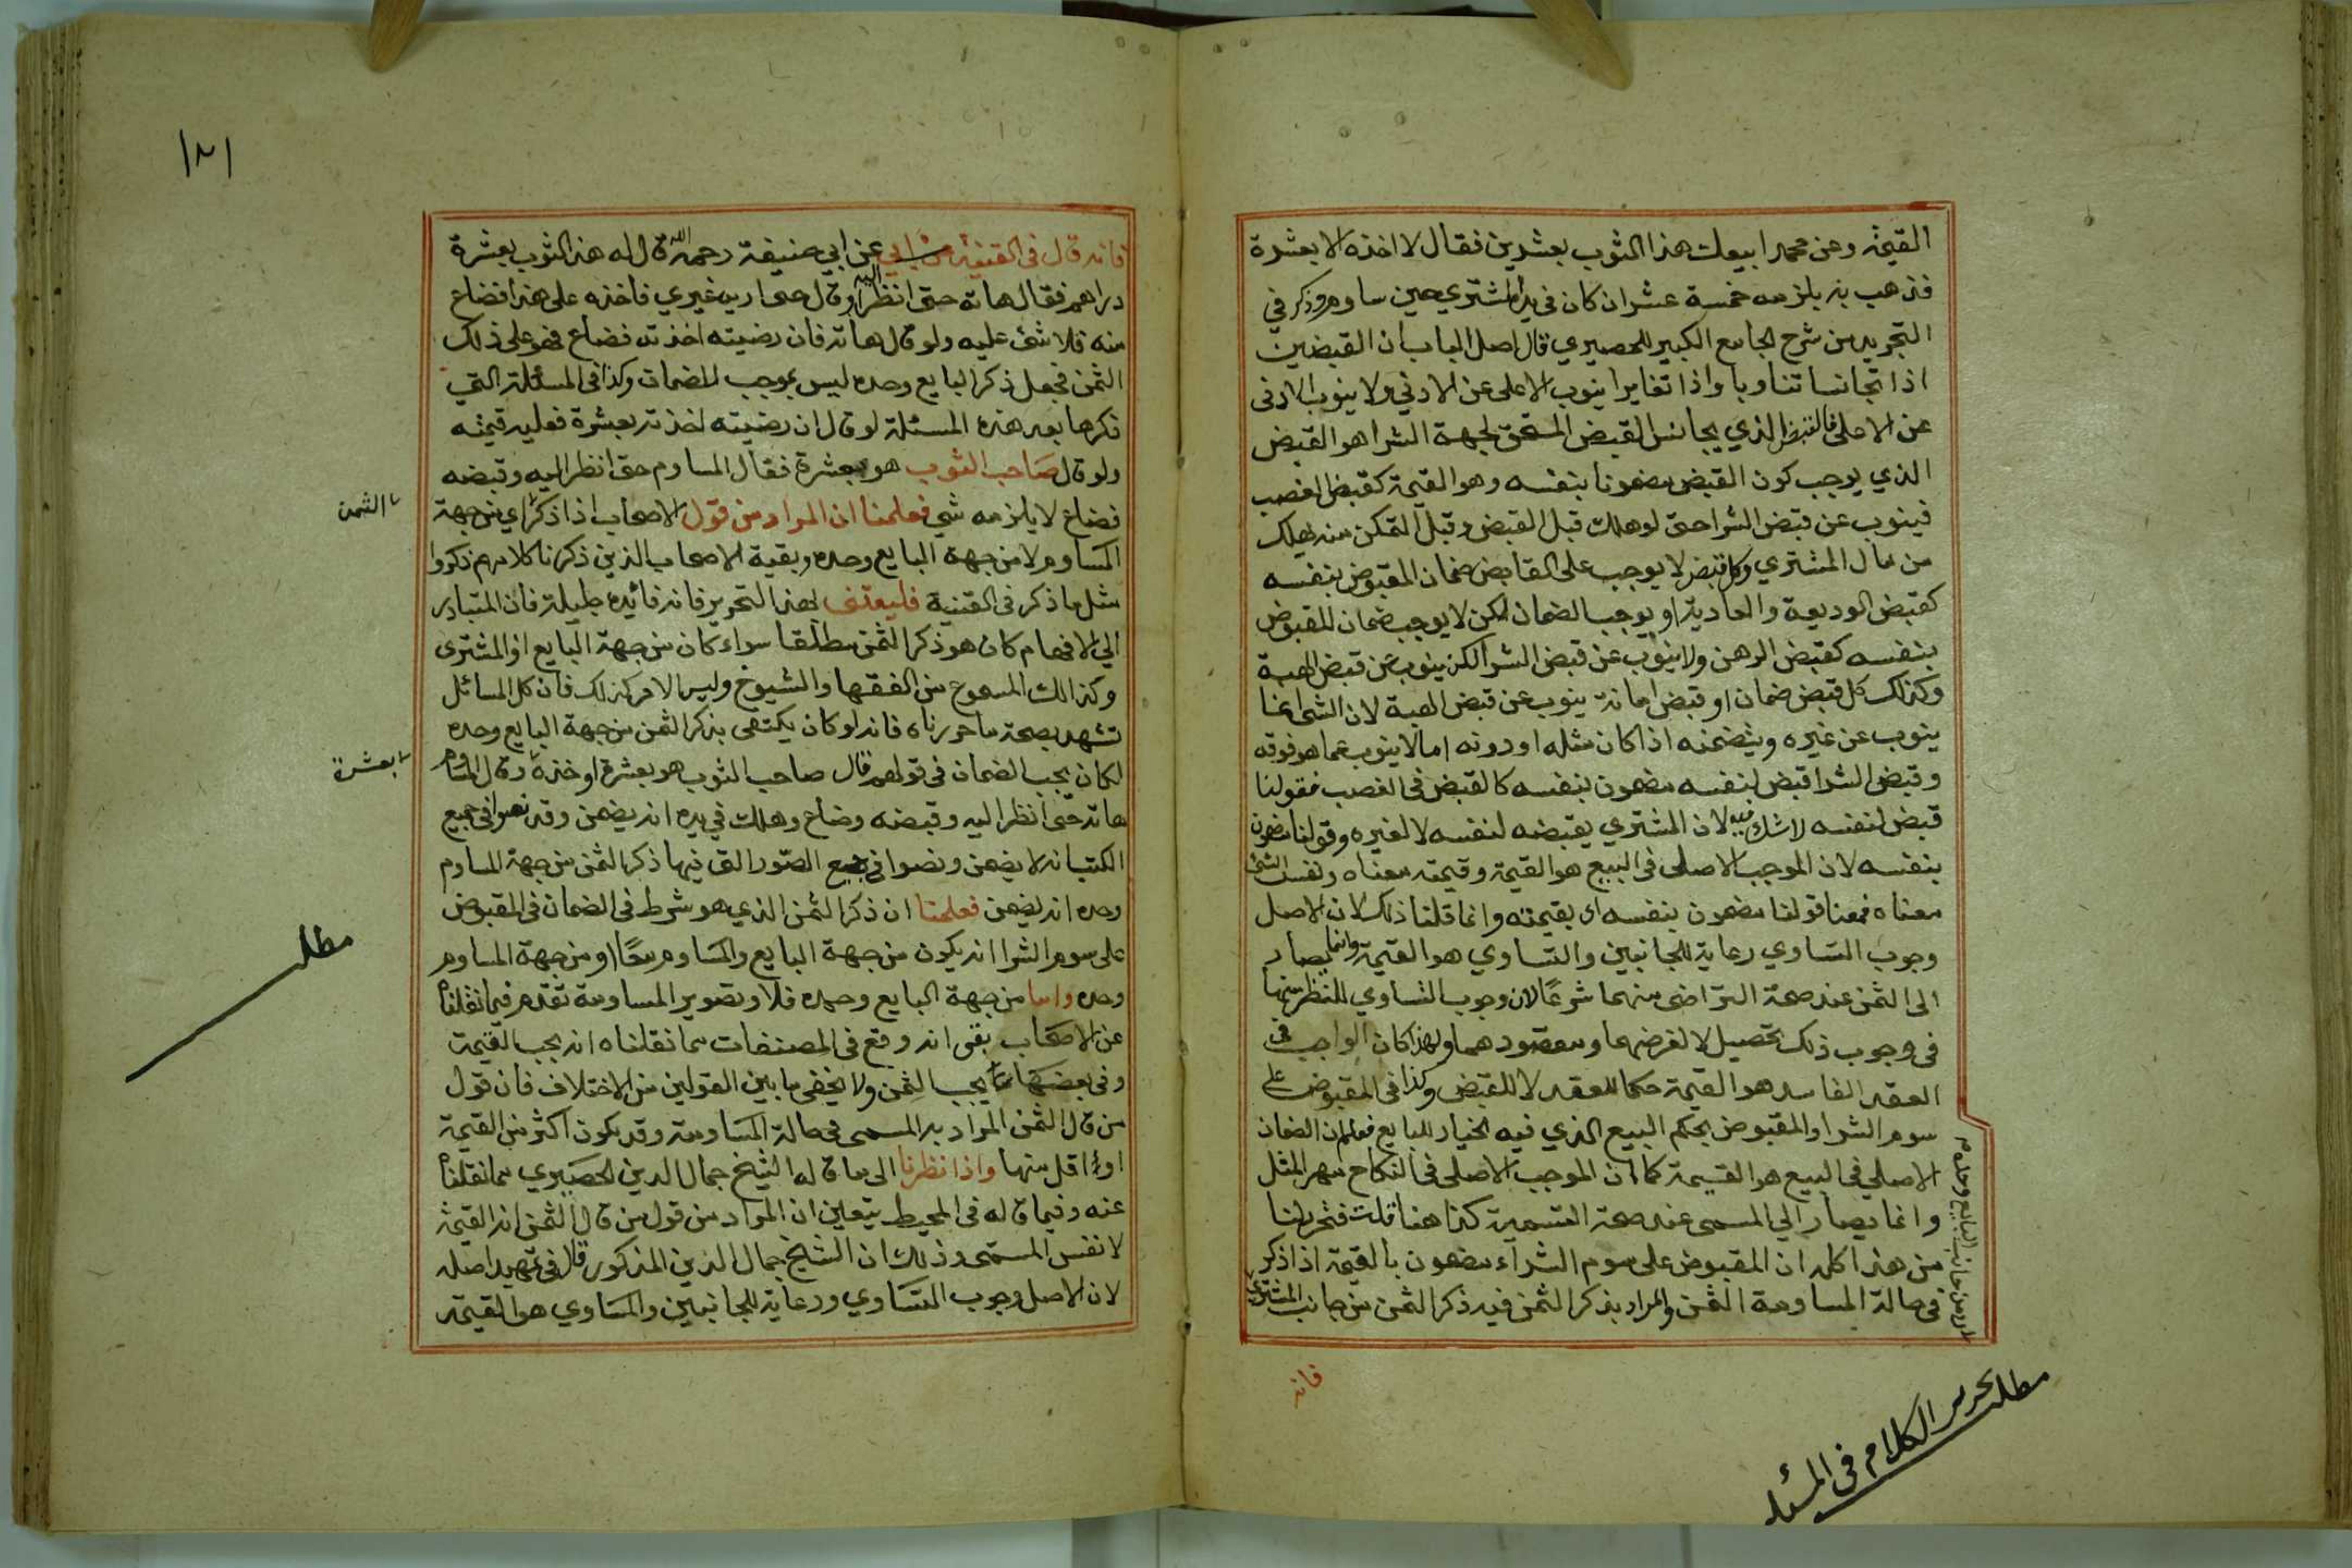 القيمة وعن محمد ابيعك هذا الثوب بعشرين فقال لا اخذه الا بعشرة
فذهب به يلزمه خمسة عشر ان كان في يد المشتري حين ساومه وذكر في
التجريد من شرح الجامع الكبير للحصيري قال اصل الباب ان القبضين
اذا تجانسا تناوبا واذا تغايرا ينوب الاعلى عن الادني ولا ينوب الادنى
عن الاعلى فالقبض الذي يجانس القبض المستحق لجهة الشرا هو القبض
الذي يوجب كون القبض مضمونا بنفسه وهو القيمة كقبض الغصب
فينوب عن قبض الشرا حتى لو هلك قبل القبض وقبل التمكن منه يهلك
من مال المشتري وكل قبض لا يوجب على القابض ضمان المقبوض بنفسه
كقبض الوديعة والعارية او يوجب الضمان لكن لا يوجب ضمان المقبوض
بنفسه كقبض الرهن ولا ينوب عن قبض الشرا لكن ينوب عن قبض الهبة
وكذلك كل قبض ضمان او قبض امانة ينوب عن قبض الهبة لان الشي انما
ينوب عن غيره ويتضمنه اذا كان مثله او دونه اما لا ينوب عما هو فوقه
وقبض الشرا قبض لنفسه مضمون بنفسه كالقبض في الغصب فقولنا
قبض لنفسه لا شك فيه لان المشتري يقبضه لنفسه لا لغيره وقولنا مضمون
بنفسه لان الموجب الاصلى في البيع هو القيمة وقيمته معناه ونفس الشئ
معناه فمعنا قولنا مضمون بنفسه اى بقيمته وانما قلنا ذلك لان الاصل
وجوب التساوي رعاية للجانبين والتساوي هو القيمة وانما يصار
الى الثمن عند صحة التراضى منهما شرعًا لان وجوب التساوي للنظر منهما
فى وجوب ذلك تحصيلا لغرضهما ومقصودهما ولهذا كان الواجب في
العقد الفاسد هو القيمة حكما للعقد لا للقبض وكذا فى المقبوض على
سوم الشرا والمقبوض بحكم البيع الذي فيه الخيار للبايع فعلم ان الضمان
الاصلي في البيع هو القيمة كما ان الموجب الاصلى في النكاح مهر المثل
وانما يصار الي المسمى عند صحة التسمية كذا هنا قلت فتحرر لنا
من هذا كله ان المقبوض على سوم الشراء مضمون بالقيمة اذا ذكر
في حالة المساومة الثمن والمراد بذكر الثمن فيه ذكر الثمن من جانب المشتري
او من جانب البايع وحده
فانه
مطلب تحرير الكلام فى المسئلة
١٨١
فانه قال فى القنية عن ابي حنيفة رحمه الله قال له هذا الثوب بعشرة
دراهم فقال هاته حتى انظر اليه او قال حتى اريه غيري فاخذه على هذا فضاع
منه فلا شئ عليه ولو قال هاته فان رضيته اخذته فضاع فهو على ذلك
الثمن فجعل ذكر البايع وحده ليس بموجب للضمان وكذا فى المسئلة التي
ذكرها بعد هذه المسئلة لو قال ان رضيته اخذته بعشرة فعليه قيمته
ولو قال صاحب الثوب هو بعشرة فقال المساوم حتى انظر اليه وقبضه
فضاع لا يلزمه شي فعلمنا ان المراد من قول الاصحاب اذا ذكر اي من جهة
الثمن
المساوم لا من جهة البايع وحده وبقية الاصحاب الذين ذكرنا كلامهم ذكروا
مثل ما ذكر فى القنية فليعتنى بهذا التحرير فانه فائدة جليلة فان المتبادر
الي الافهام كان هو ذكر الثمن مطلقا سواء كان من جهة البايع او المشترى
وكذالك المسموع من الفقها والشيوخ وليس الامر كذلك فان كل المسائل
تشهد بصحة ما حررناه فانه لو كان يكتفى بذكر الثمن من جهة البايع وحده
لكان يجب الضمان في قولهم قال صاحب الثوب هو بعشرة او خذه وقال المساوم
بعشرة
هاته حتى انظر اليه وقبضه وضاع وهلك في يده انه يضمن وقد نصوا في جميع
الكتب انه لا يضمن ونصوا في جميع الصور التى فيها ذكر الثمن من جهة المساوم
وحده انه يضمن فعلمنا ان ذكر الثمن الذي هو شرط فى الضمان فى المقبوض
على سوم الشرا انه يكون من جهة البايع والمساوم معًا او من جهة المساوم
مطلب
وحده واما من جهة البايع وحده فلا وتصوير المساومة تقدم فيما نقلناه
عن الاصحاب بقى انه وقع فى المصنفات مما نقلناه انه يجب القيمة
وفى بعضها يجب الثمن ولا يخفى ما بين القولين من الاختلاف فان قول
من قال الثمن المراد به المسمى فى حالة المساومة وقد يكون اكثر من القيمة
او اقل منها واذا نظرنا الى ما قاله الشيخ جمال الدين الحصيري مما نقلناه
عنه وفيما قاله فى المحيط يتعين ان المراد من قول من قال الثمن انه القيمة
لا نفس المسمى وذلك ان الشيخ جمال الدين المذكور قال في تمهيد اصله
لان الاصل وجوب التساوي ورعاية للجانبين والمساوي هو القيمة